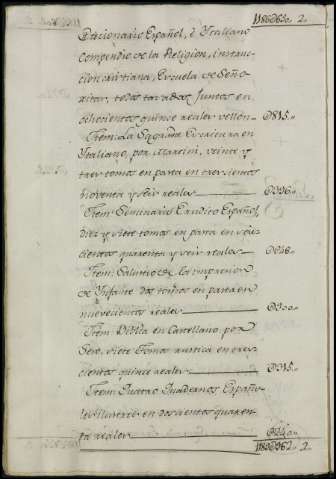 Diccionario Español, è Ytaliano
Compendio de la Religion, instruc-
cion christiana, Escuela de Seño-
ritas, todas tasadas juntas en
ochocientos quince reales vellon
815
Ytem: La Sagrada Escritura en
Ytaliano, por Martini, veinte y
tres tomos en pasta en trescientos
noventa y seis reales
396
Ytem: Seminario Erudito Español,
diez y siete tomos en pasta en
cientos quarenta y seis reales
Ytem: Salustio de la impresion
de Infante dos tomos en pasta en
nuevecientos reales
Ytem: Biblia en Castellano, por
Sero, siete tomos rustica en tres-
cientos quince reales
315
Ytem: Quatro Quadernos Españo-
les Ilustres en doscientos quaren-
ta reales
240